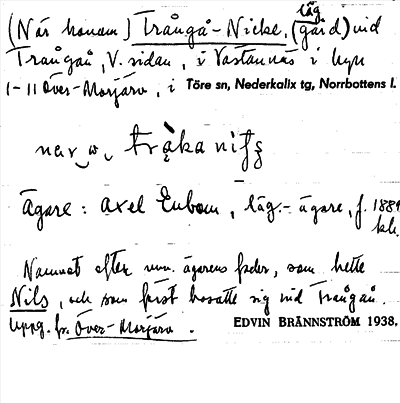 (När honom) Trångå-Nicke, (lägård) vid
Trångån, V. sidan, i Västannäs i byn
1-11 Över-Morjärv, i Töre sn, Nederkalix tg, Norrbottens l.
Ägare: Axel Enbom, läg.-ägare, f. 1889
Namnet efter nuv. ägarens fader, som hette
Nils, och som först bosatte sig vid Trångån.
Uppg. fr. Över-Morjärv.
EDVIN BRÄNNSTRÖM 1938.